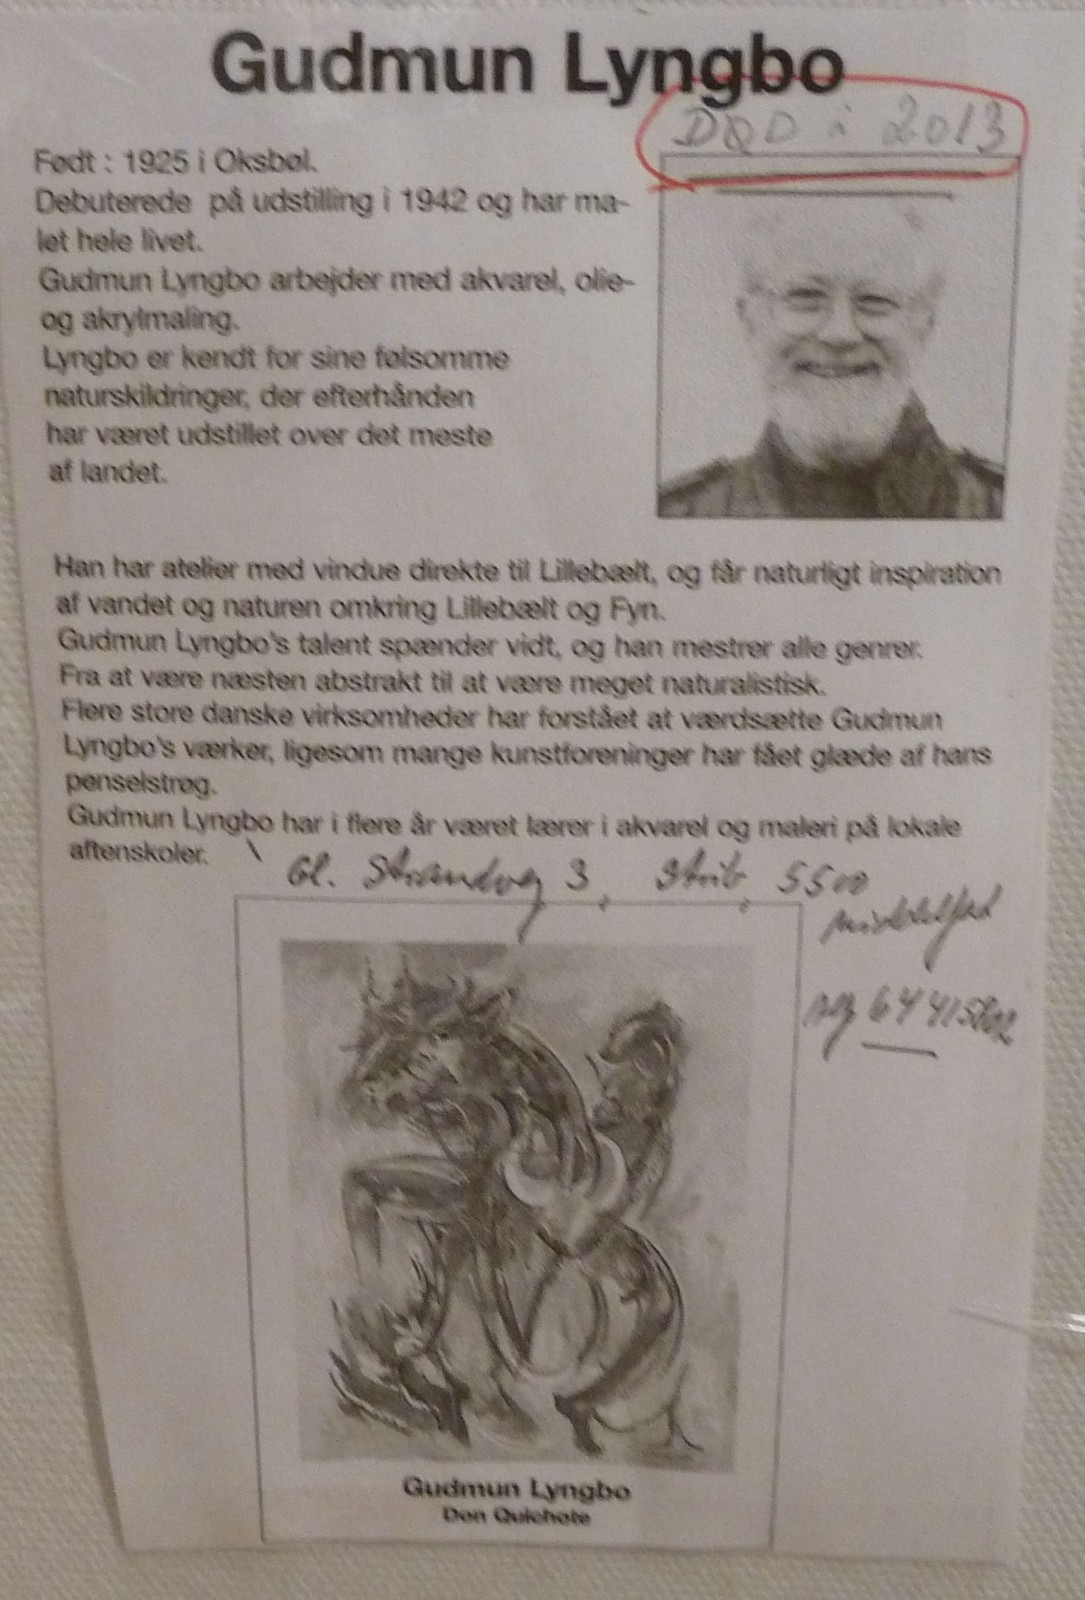 Gudmun Lyngbo
DØD i 2013
Født : 1925 i Oksbøl.
Debuterede på udstilling i 1942 og har ma-
let hele livet.
Gudmun Lyngbo arbejder med akvarel, olie-
og akrylmaling.
Lyngbo er kendt for sine følsomme
naturskildringer, der efterhånden
har været udstillet over det meste
af landet.
Han har atelier med vindue direkte til Lillebælt, og får naturligt inspiration
af vandet og naturen omkring Lillebælt og Fyn.
Gudmun Lyngbo's talent spænder vidt, og han mestrer alle genrer.
Fra at være næsten abstrakt til at være meget naturalistisk.
Flere store danske virksomheder har forstået at værdsætte Gudmun
Lyngbo's værker, ligesom mange kunstforeninger har fået glæde af hans
penselstrøg.
Gudmun Lyngbo har i flere år været lærer i akvarel og maleri på lokale
aftenskoler.
Gl. Strandvej 3, Strib, 5500
Middelfart
Gudmun Lyngbo
Don Quichote